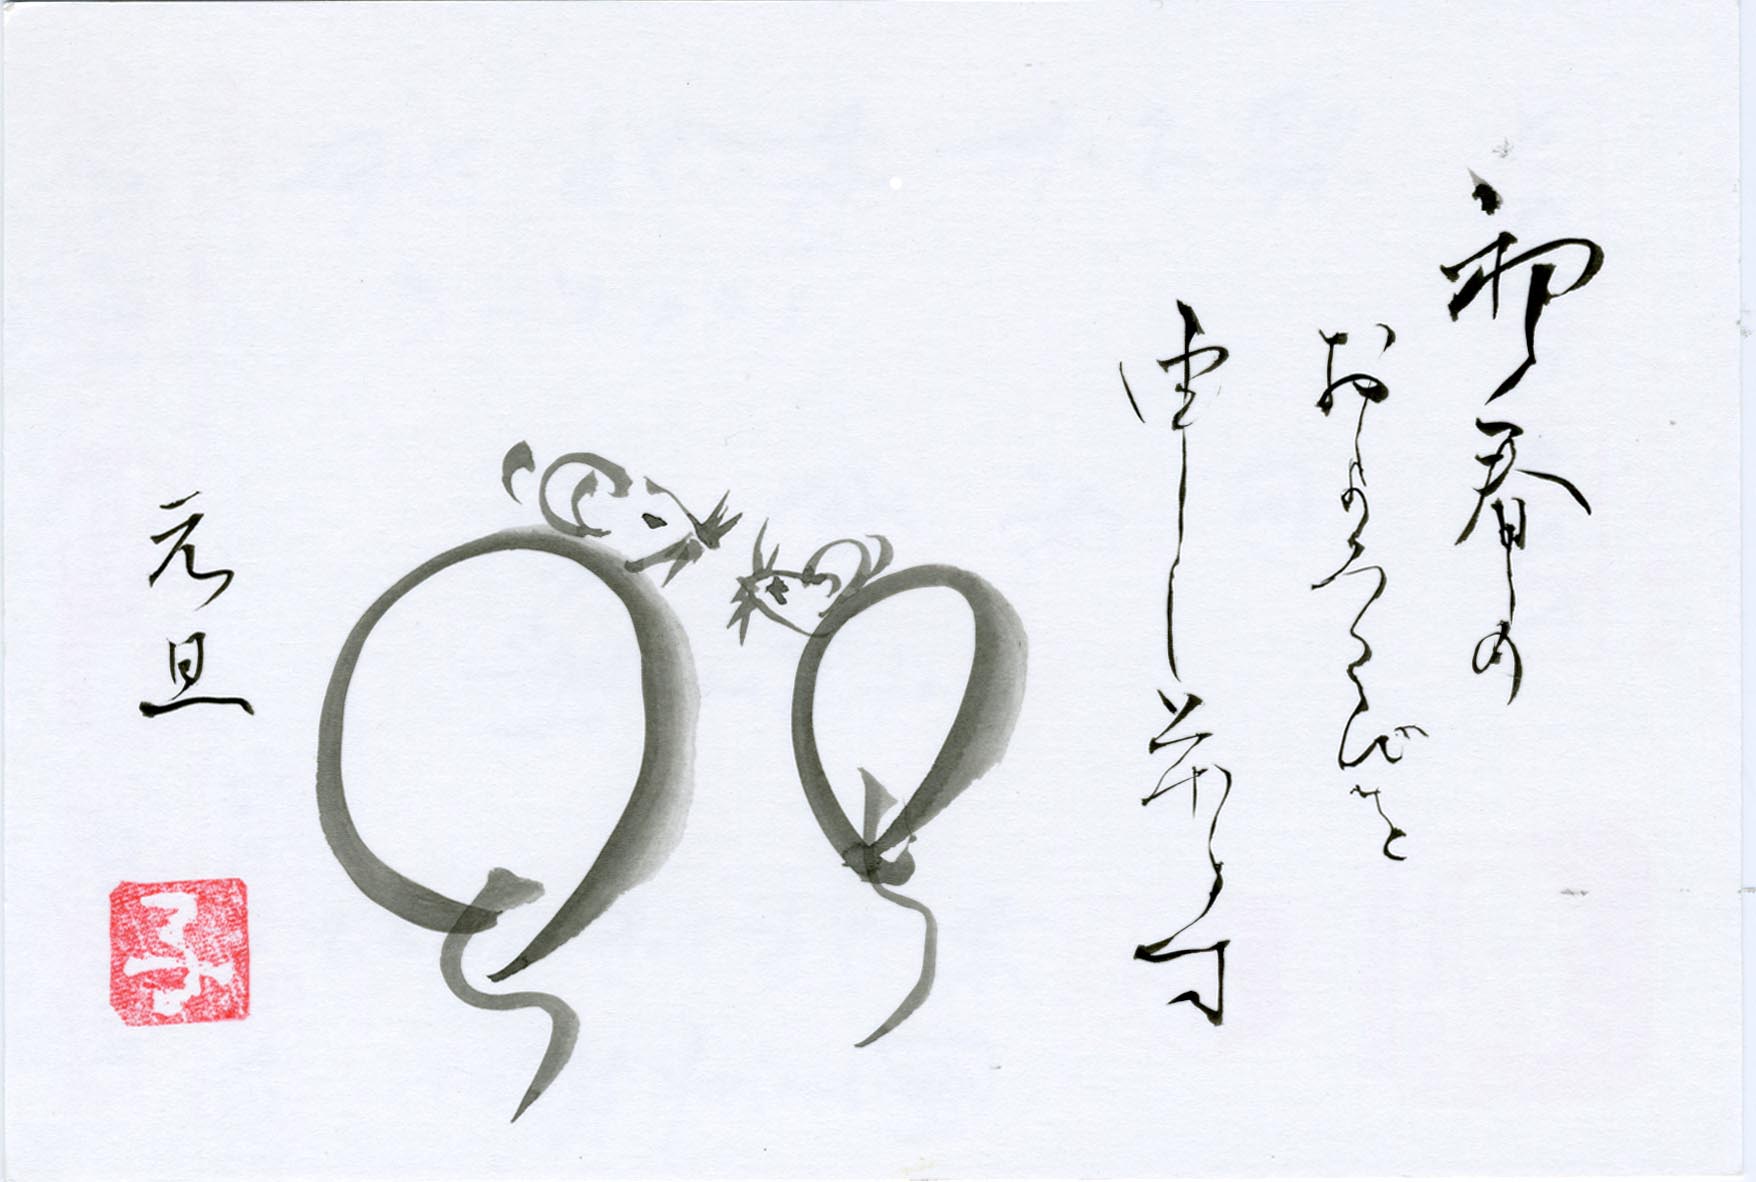 初春の
おようろこびを
申し上げます
元旦
子